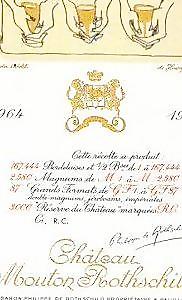 1964
Cette récolte a produit
167,444 Bordelaises et 1/2 Bses de 1 à 167,444
2,580 Magnums de M 1 à M 2,580
87 Grands Formats de G F 1 à G F 87
double-magnums, jéroboams, impériales
3000 "Réserve du Château" marquées R.C.
Ci, R.C.
Château
Mouton Rothschild
BARON PHILIPPE DE ROTHSCHILD PROPRIÉTAIRE A PAUILLAC